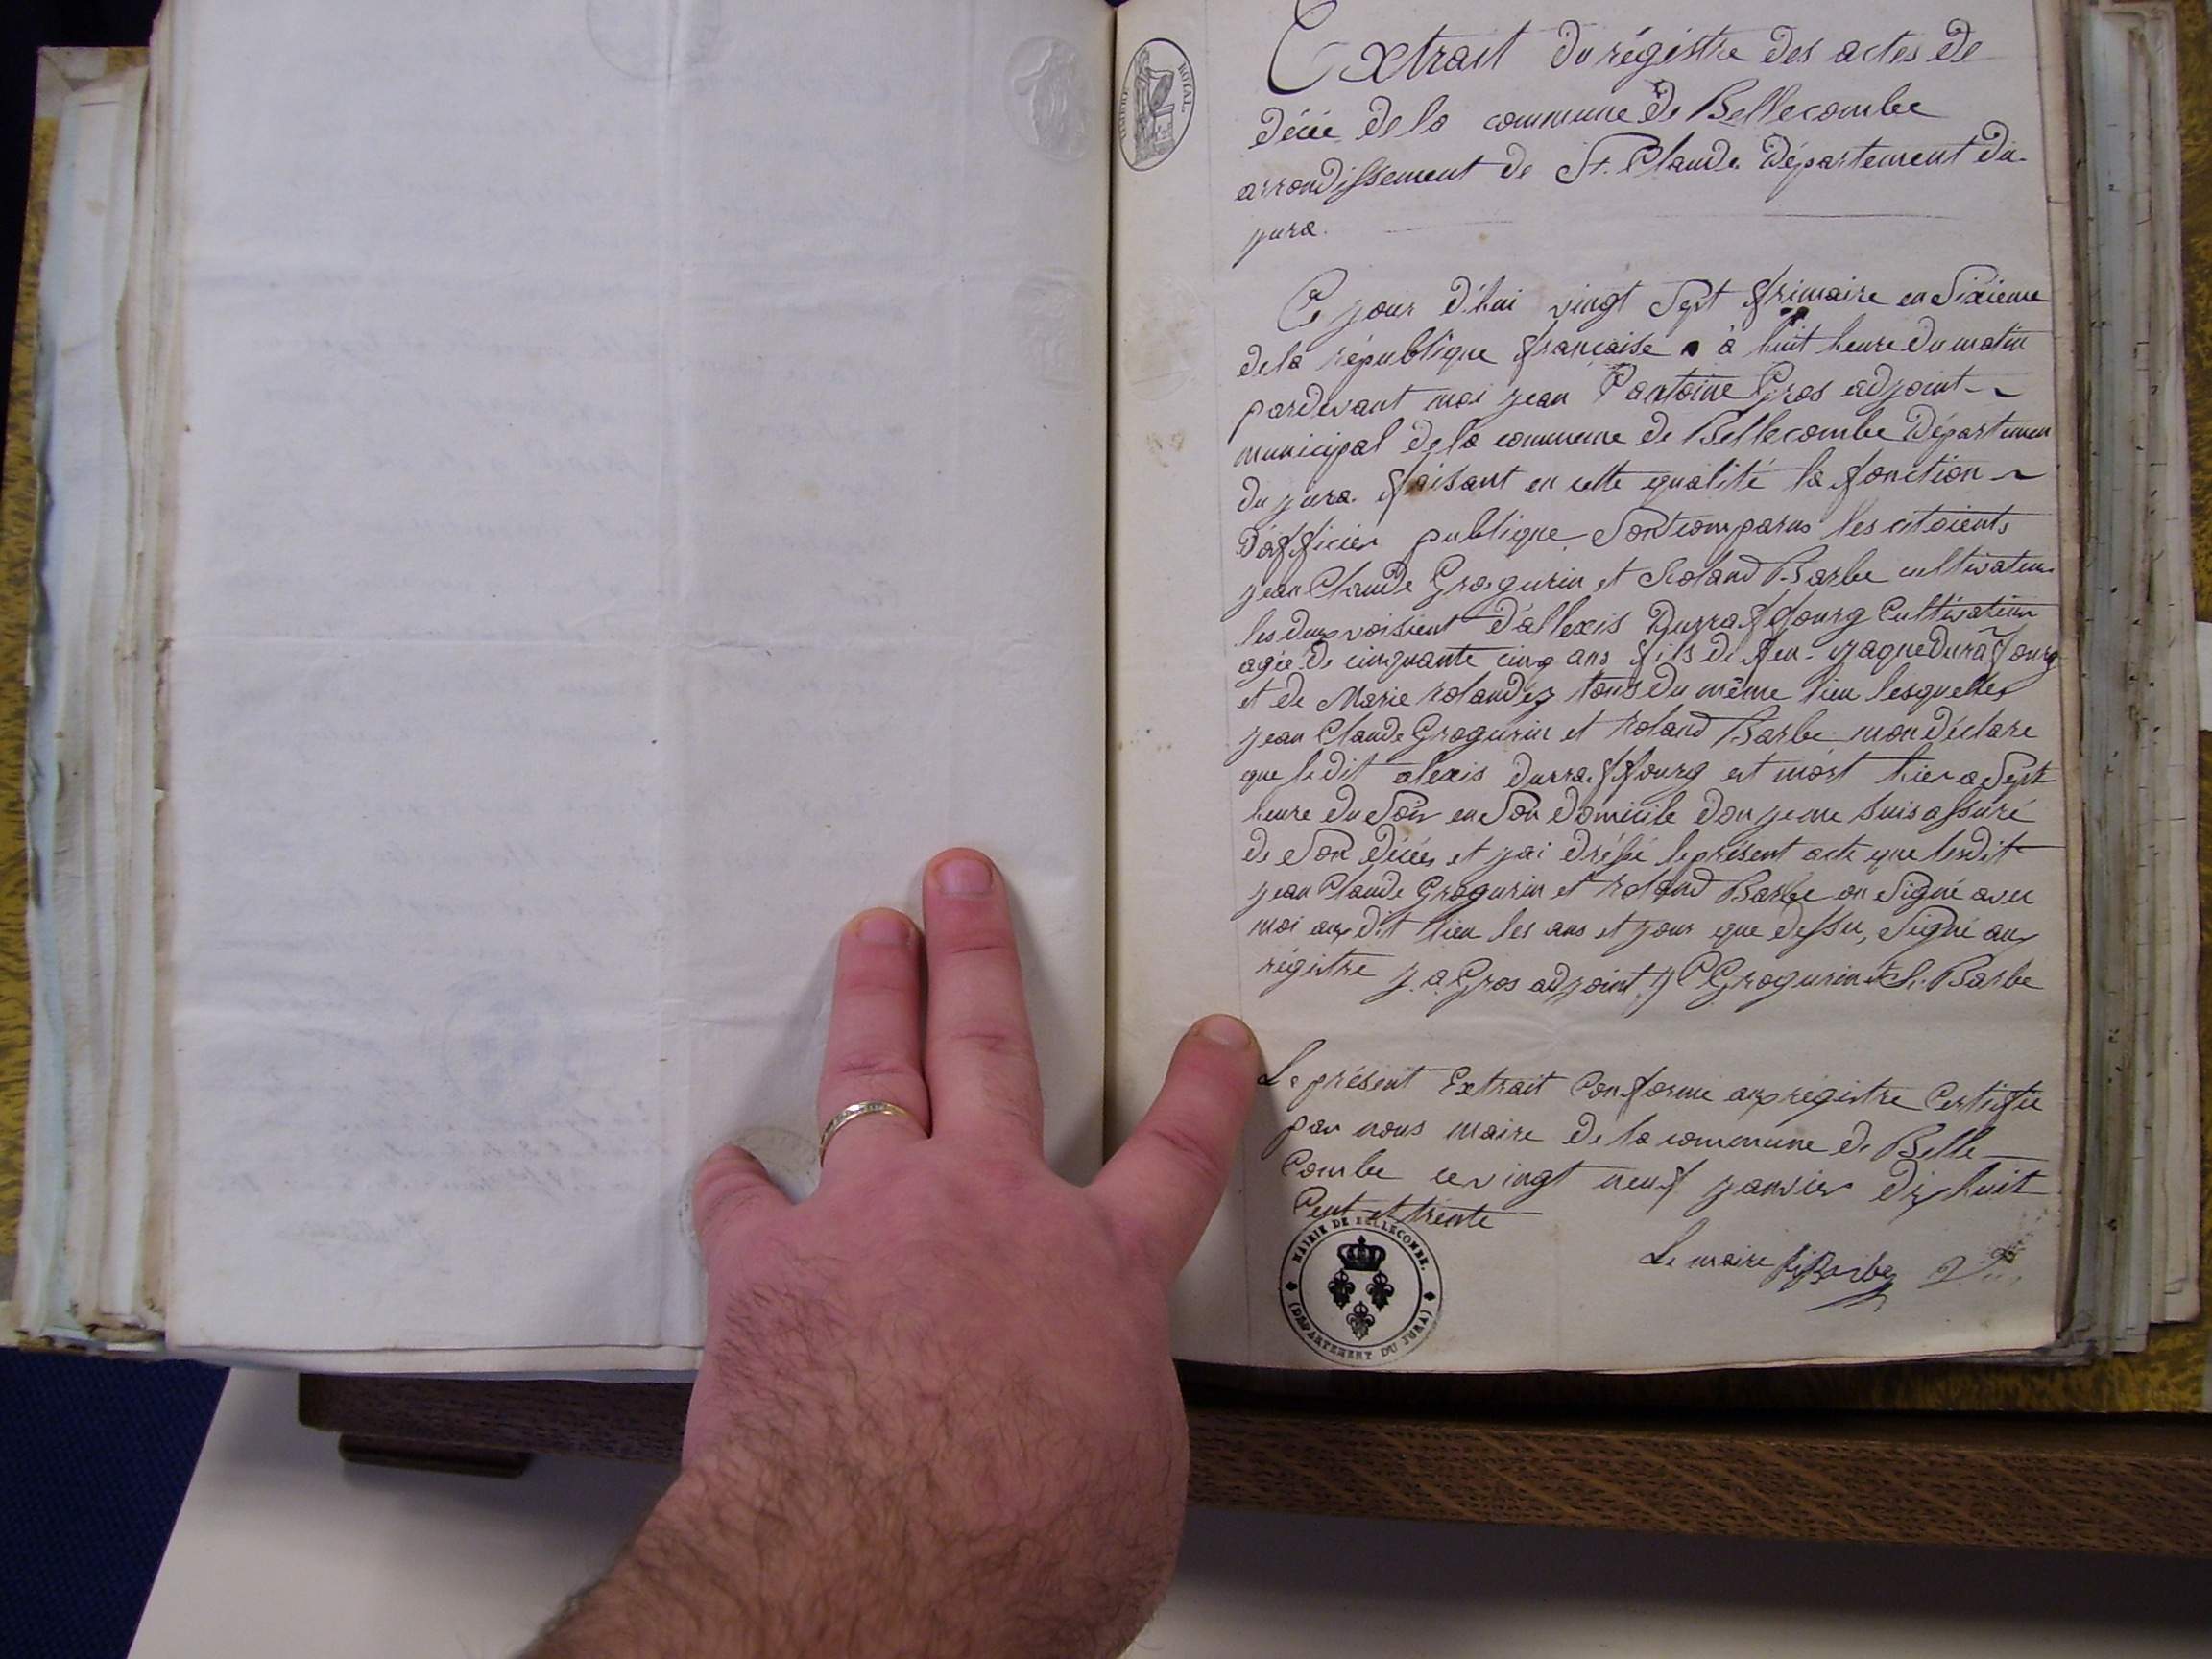 TIMBRE ROYAL
Extrait du régistre des actes de
décée de la commune de Bellecombe
arrondissement de St. Claude Département du
jura.
Ce jour d'hui vingt sept frimaire en sixieme
de la république française à huit heure du matin
pardevant moi jean antoine Gros adjoint
municipal de la commune de Bellecombe Départemen
du jura. faisant en cette qualité la fonction
d'officier publique sont comparus les citoients
jean Claude Grosgurin et Roland Barbe cultivateur
les deux voisient d'allexis Durraffourg Cultivateur
agée de cinquante cinq ans fils de feu jaque Duraffourg
et de Marie rolandez tous du même lieu lesquelles
jean Claude Grogurin et roland Barbe mon déclare
que le dit alexis durraffourg est mort hier a sept
heure du soir en son domicile don je me suis assuré
de son décée et jai dréssé le présent acte que lesdit
jean Claude Grogurin et roland Barbe on signé avec
moi au dit lieu les ans et jour que dessu, signé au
régistre j. a. Gros adjoint j C Grogurin et Barbe
Le présent Extrait Conforme aux registre Certifié
par nous maire de la commune de Belle
Combe ce vingt neuf janvier dix huit
Cent et trente
Le maire Barbe
MAIRIE DE BELLECOMBE.
(DÉPARTEMENT DU JURA)